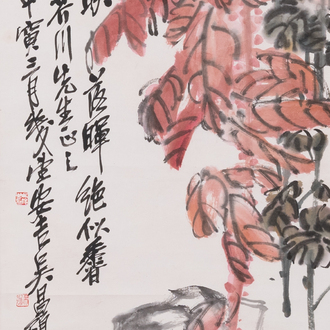 落暉絕似番
若川先生正之
甲寅三月幾望安吉吳昌碩